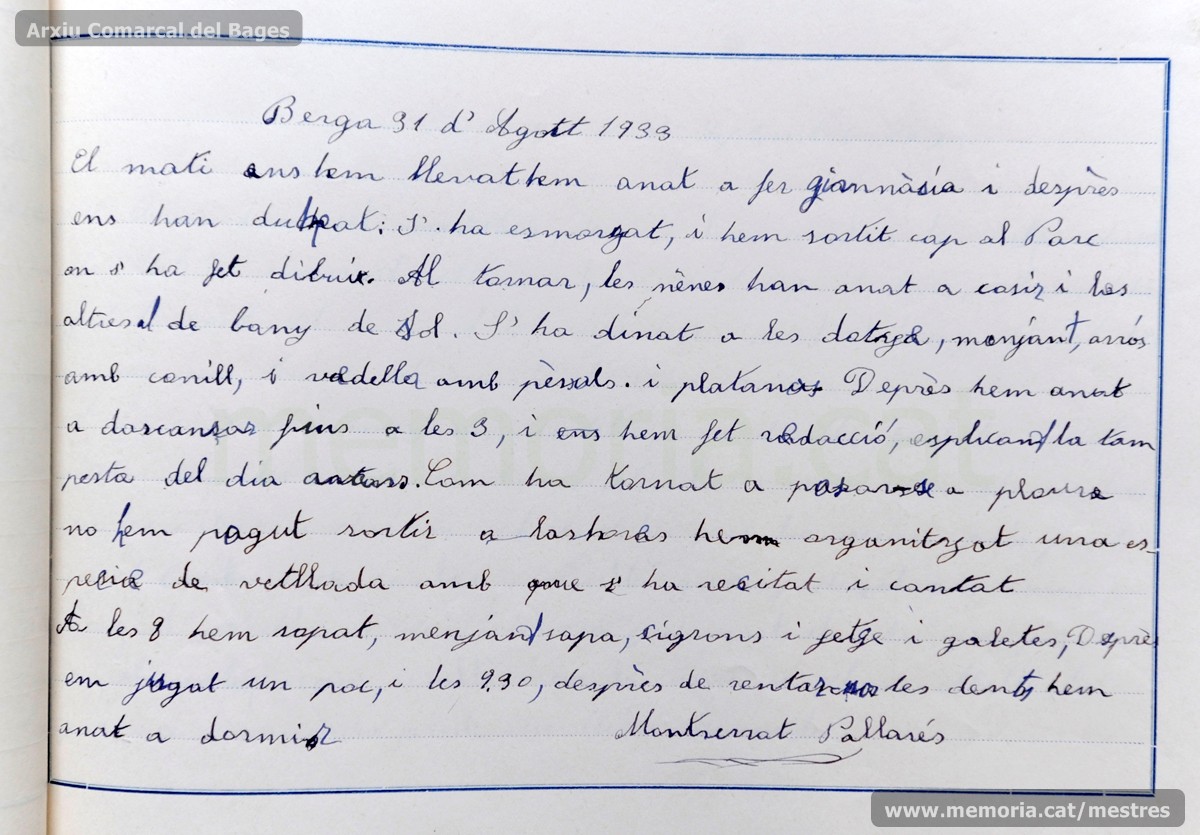 Arxiu Comarcal del Bages
Berga 31 d'Agost 1933
El mati ens hem llevat hem anat a fer gimnàsia i desprès
ens han dutxat; S'ha esmorzat, i hem sortit cap al Parc
on s'ha fet dibuix. Al tornar, les nènes han anat a cosir i los
altres al de bany de Sol. S'ha dinat a les dotze, menjant, arrós
amb conill, i vedella amb pèssols. i platans Deprès hem anat
a dascansar fins a les 3, i ens hem fet redacció, esplicant la tam
pesta del dia Com ha tornat a posar-se a ploure
no hem pogut sortir a hem organitzat una es-
pecie de vetllada amb que s'ha recitat i cantat
A les 8 hem sopat, menjant sopa, sigrons i fetge i galetes, Desprès
em jugat un poc, i les 9,30, desprès de rentar-nos les dents hem
anat a dormir
Montserrat Pallarés
memoria.cat
www.memoria.cat/mestres